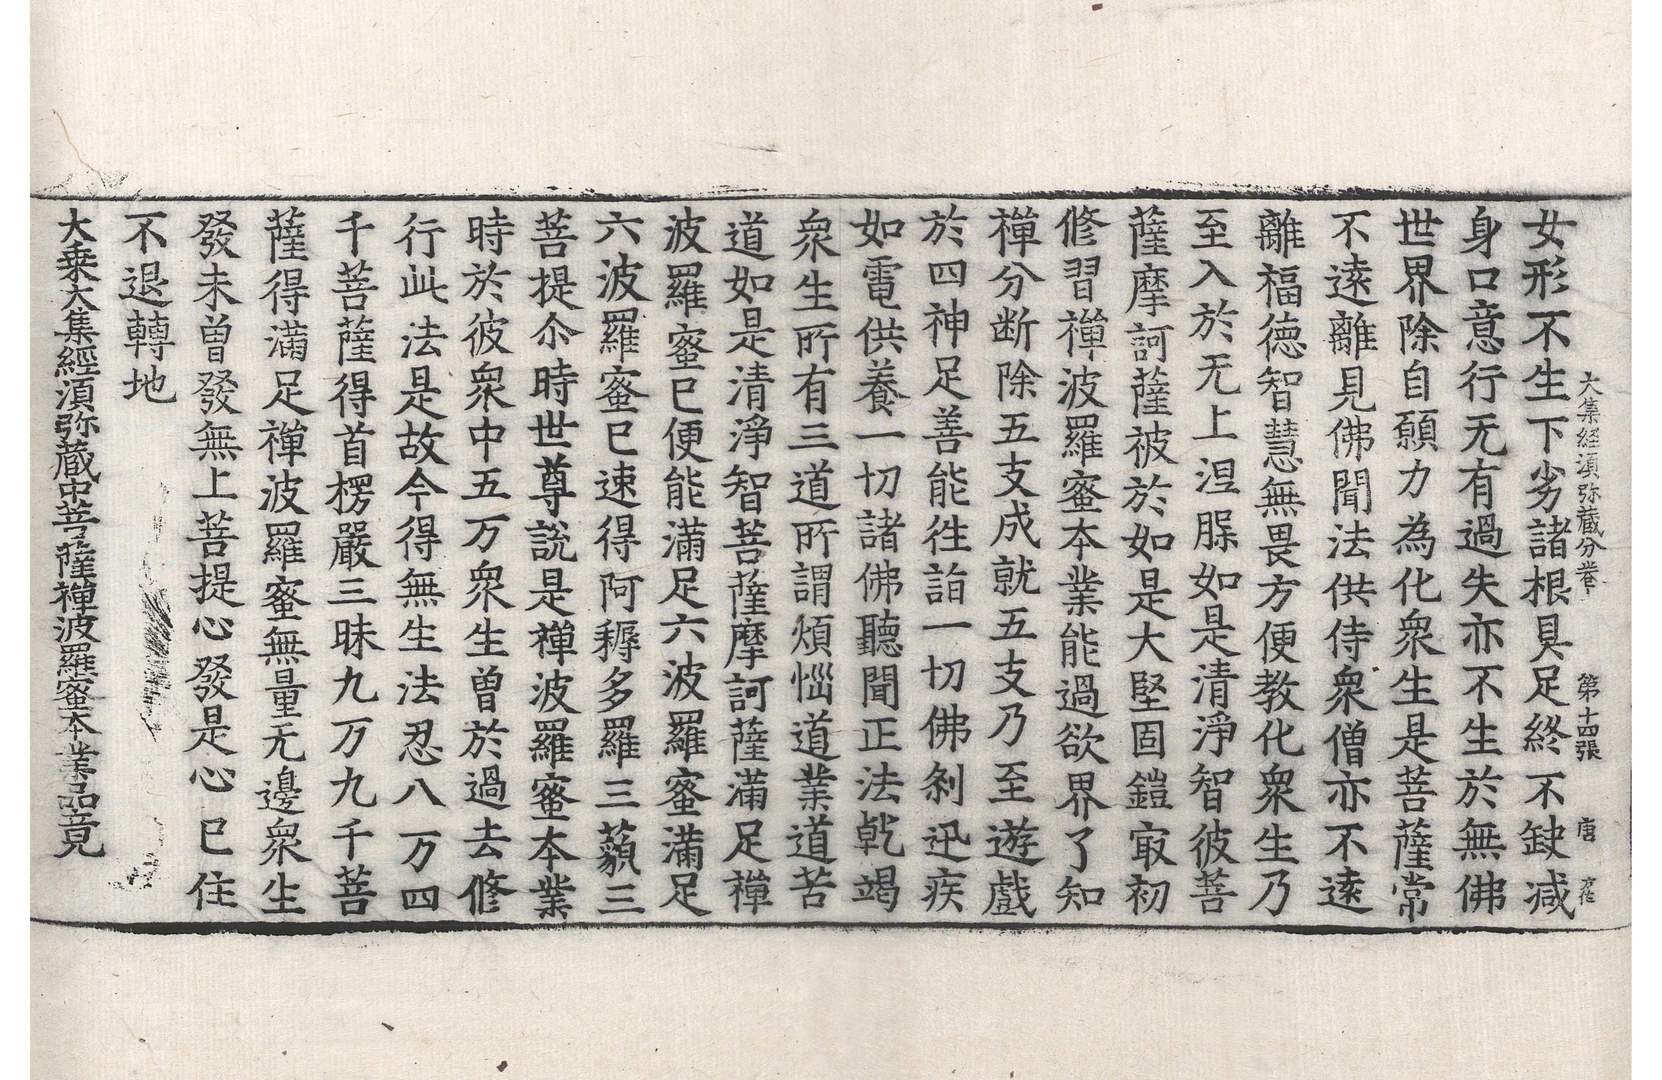 大集経湏弥蔵分卷 第十四張 唐
女形不生下劣諸根具足終不缺減
身口意行无有過失亦不生於無佛
世界除自願力為化衆生是菩薩常
不逺離見佛聞法供侍衆僧亦不逺
離福德智慧無畏方便教化衆生乃
至入於无上涅脲如是清淨智彼菩
薩摩訶薩被於如是大堅固鎧㝡初
修習禪波羅蜜本業能過欲界了知
禪分断除五支成就五支乃至遊戲
於四神足善能徃詣一切佛刹迅疾
如電供養一切諸佛聽聞正法乾竭
衆生所有三道所謂煩惱道業道苦
道如是清淨智菩薩摩訶薩滿足禪
波羅蜜已便能滿足六波羅蜜滿足
六波羅蜜已速得阿耨多羅三藐三
菩提尒時世尊說是禪波羅蜜本業
時於彼衆中五万衆生曾於過去修
行此法是故今得無生法忍八万四
千菩薩得首楞嚴三昧九万九千菩
薩得滿足禪波羅蜜無量无邊衆生
發未曽發無上菩提心發是心已住
不退轉地
大乗大集經湏弥蔵中菩薩禪波羅蜜本業品竟